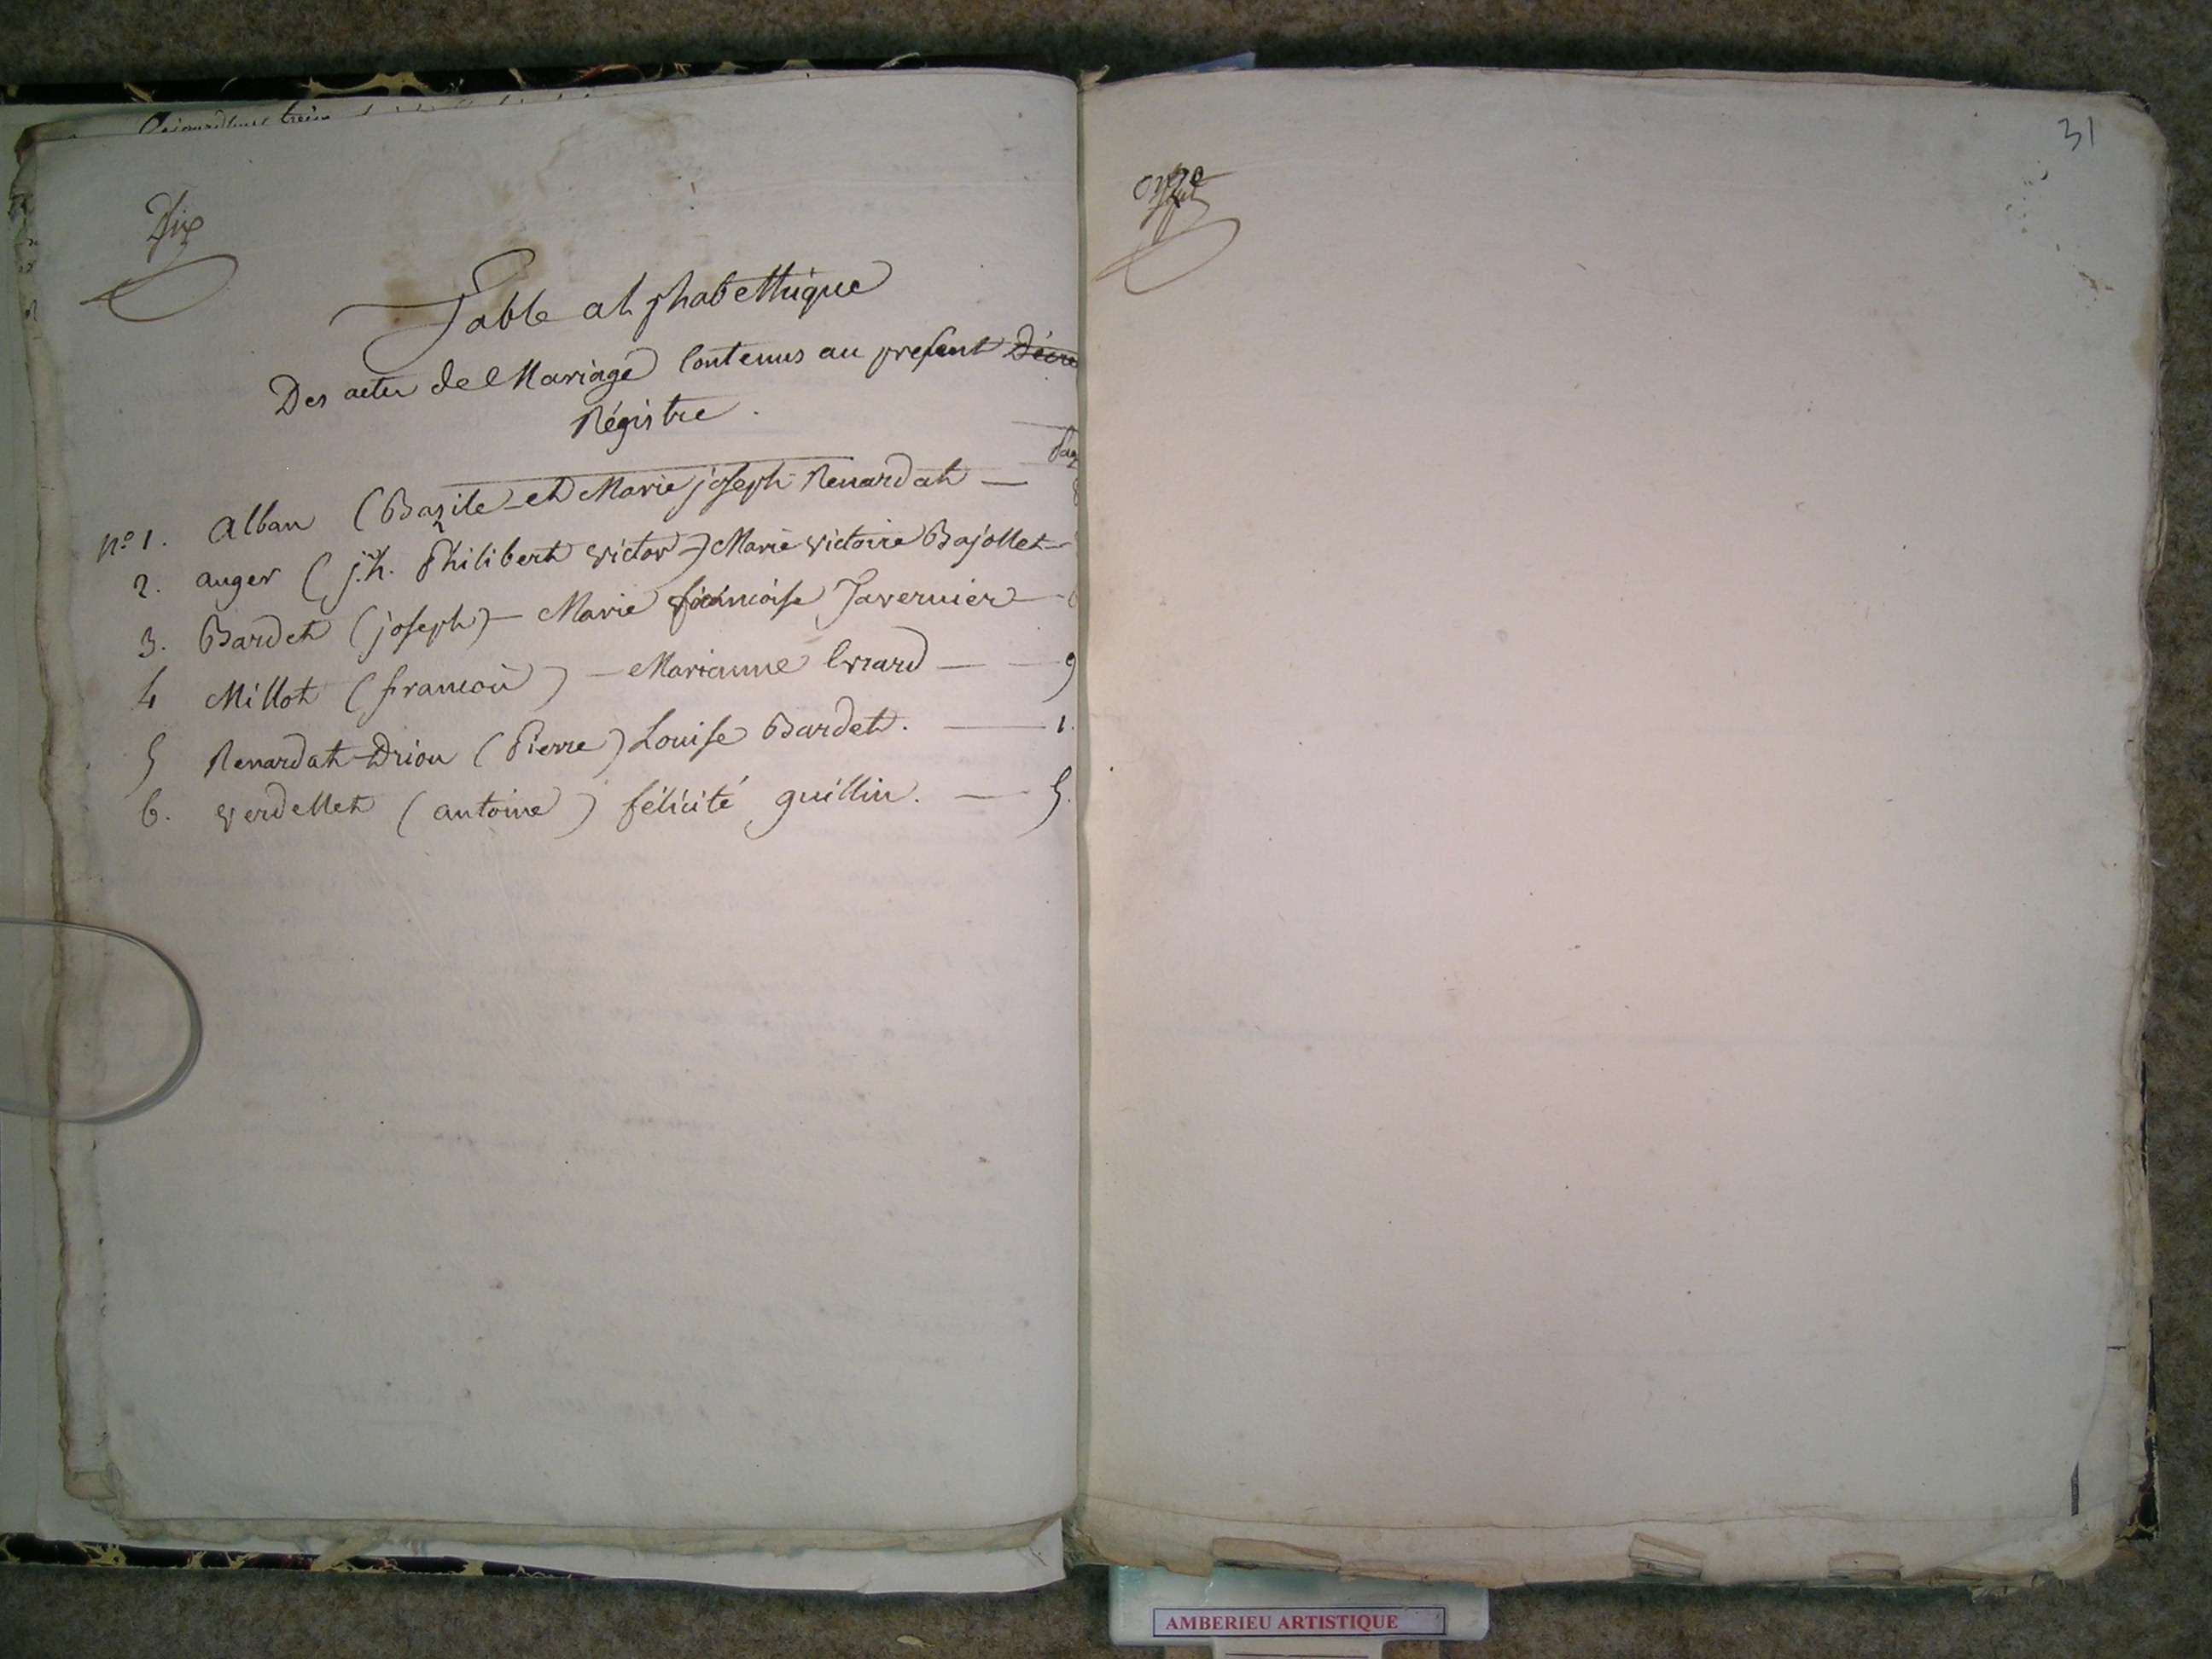 Aujourdhui treize
Dix
Table alphabettique
Des actes de Mariage Contenus au present
Régistre.
Pag
nº 1. Alban (Bazile et Marie joseph Renardat —
2. auger (jh. Philibert victor) Marie victoire Bajollet
3. Bardet (joseph) — Marie francoise Tavernier — 6
4 Millot (francois) — Marianne Evrard — 9
5 Renardat-Driou (Pierre) Louise Bardet. — 1.
6. verdellet (antoine) félicité guillin. — 5.
onze
31
AMBERIEU ARTISTIQUE